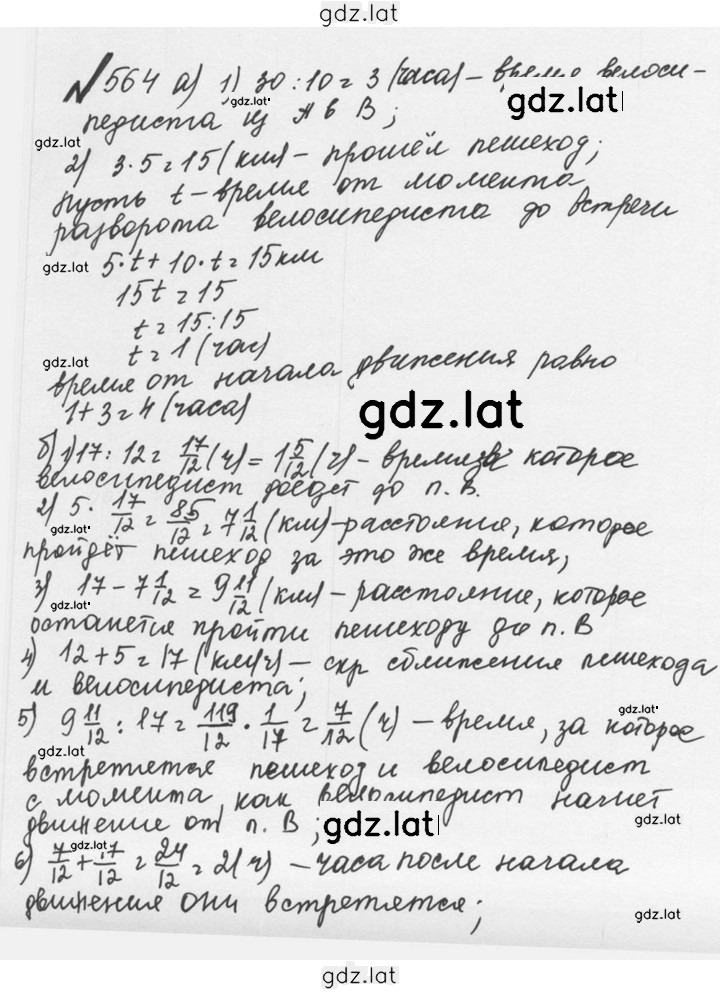 gdz.lat
№564 а) 1) 30 : 10 = 3 (часа) – время велоси-
gdz.lat
gdz.lat
педиста из А в В;
gdz.lat
2) 3·5=15 (км) – прошёл пешеход;
пусть t – время от момента
разворота велосипедиста до встречи
gdz.lat
5·t+10·t=15км
15t=15
t=15:15
t=1 (час)
gdz.lat
время от начала движения равно
1+3=4 (часа)
gdz.lat
б) 1) 17 : 12 = 17/12 (ч) = 1 5/12 (ч) – время за которое
велосипедист доедет до п. В.
2) 5 · 17/12 = 85/12 = 7 1/12 (км) – расстояние, которое
gdz.lat
пройдёт пешеход за это же время,
3) 17 – 7 1/12 = 9 11/12 (км) – расстояние, которое
gdz.lat
останется пройти пешеходу до п. В
4) 12+5=17 (км/ч) – скр сближения пешехода
и велосипедиста;
gdz.lat
5) 9 11/12 : 17 = 119/12 · 1/17 = 7/12 (ч) – время, за которое
gdz.lat
встретятся пешеход и велосипедист
с момента, как велосипедист начнет
движение от п. В;
gdz.lat
gdz.lat
6) 7/12 + 17/12 = 24/12 = 2 (ч) – часа после начала
движения они встретятся;
gdz.lat
gdz.lat